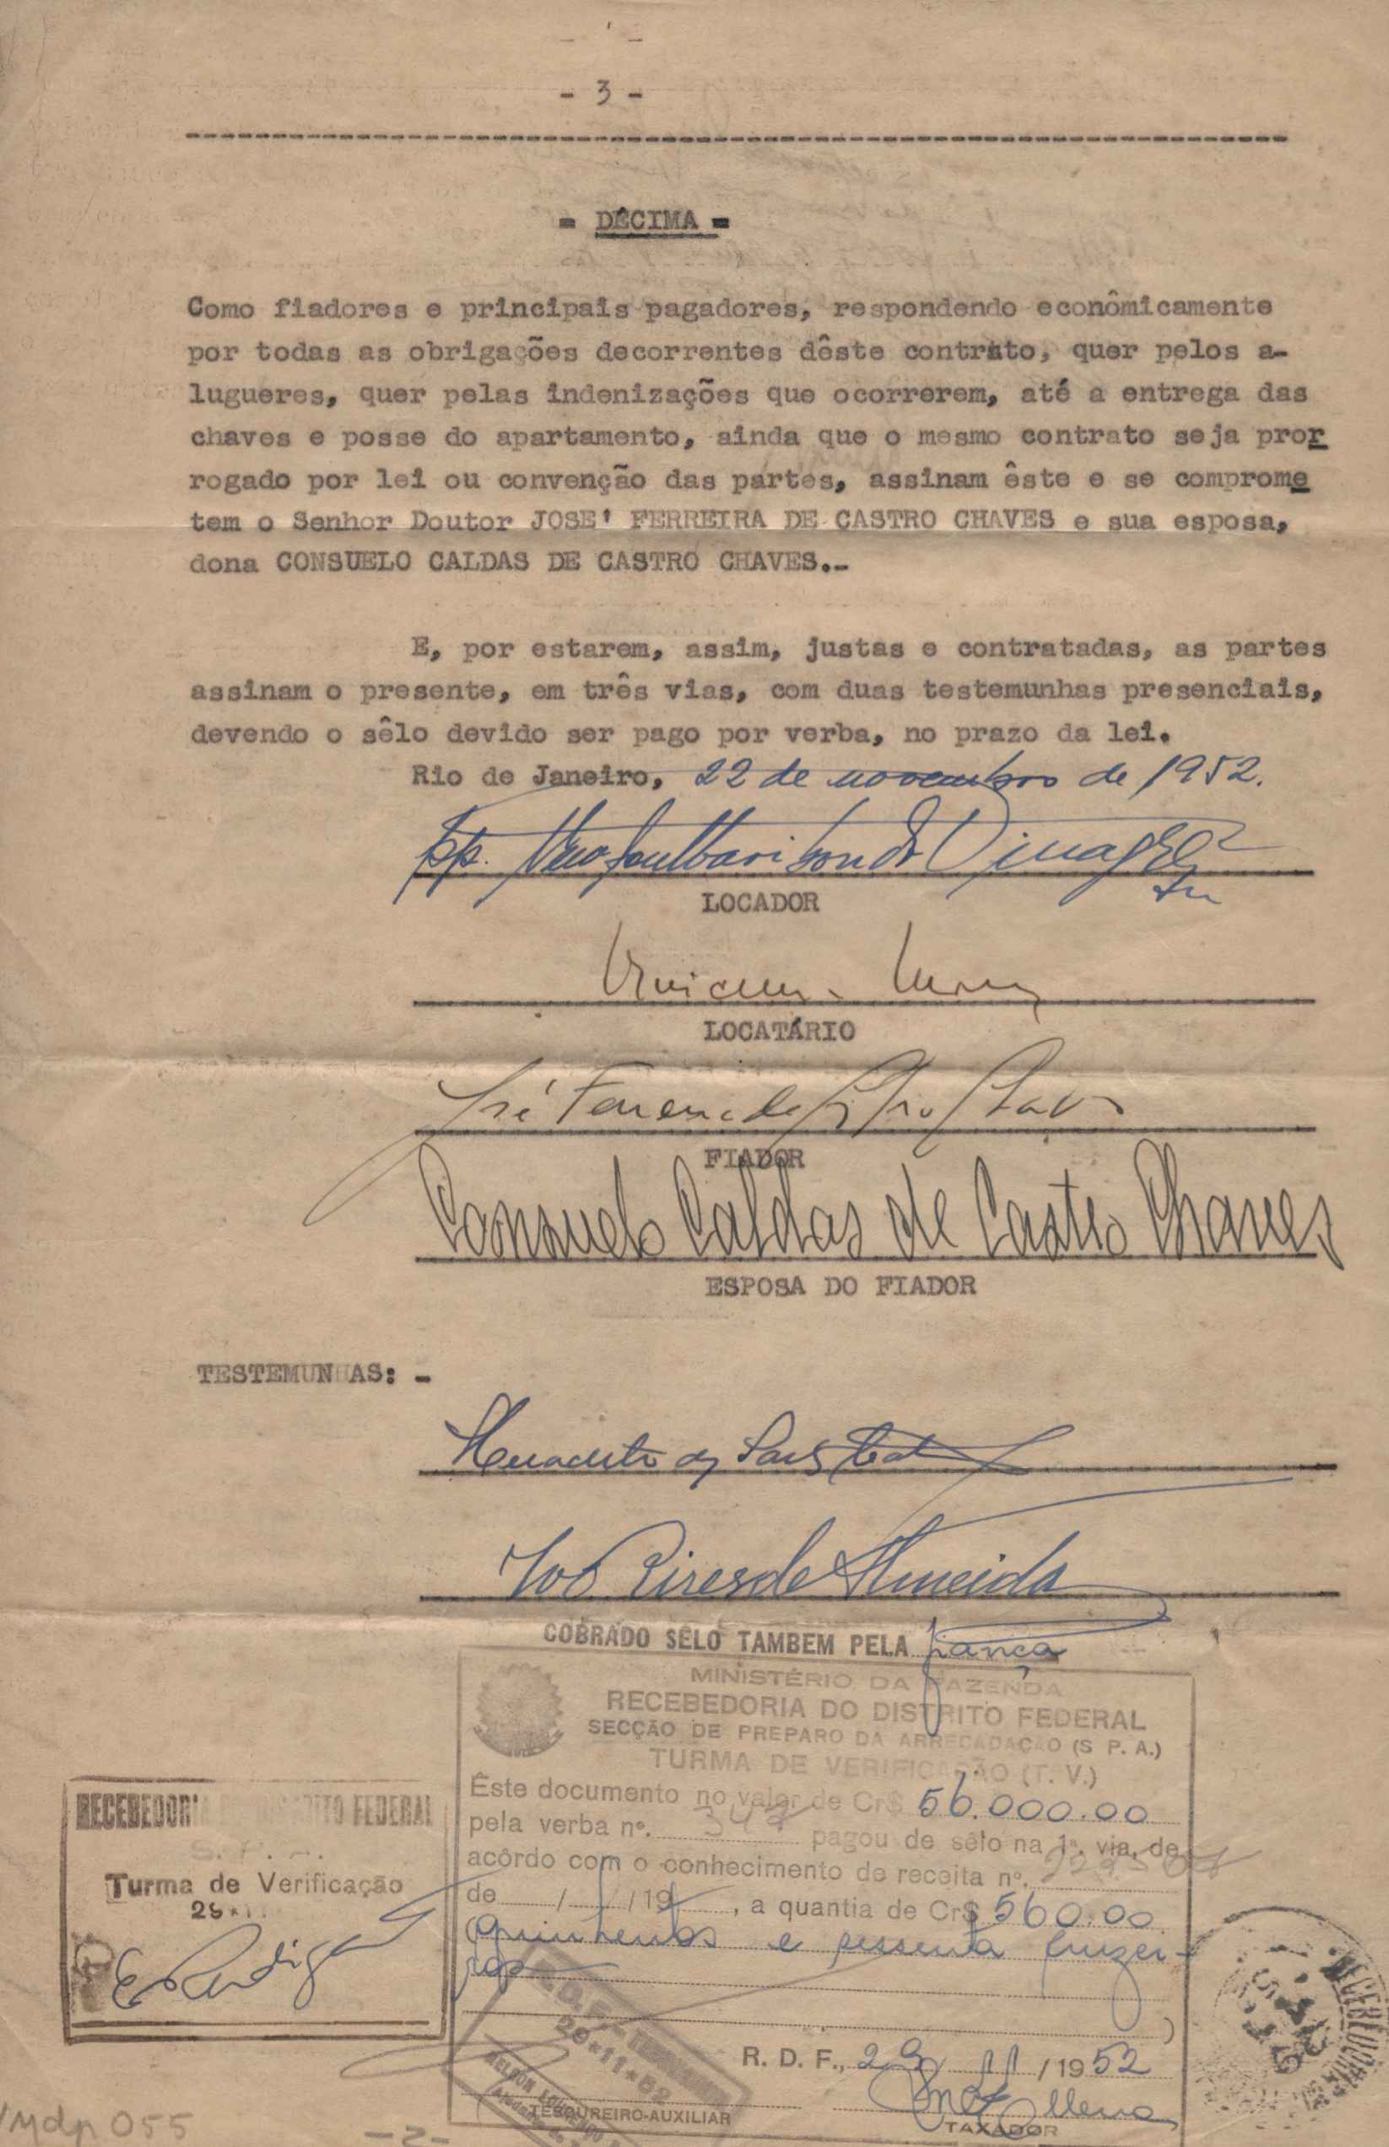 - 3 -
- DÉCIMA -
Como fiadores e principais pagadores, respondendo econômicamente
por todas as obrigações decorrentes dêste contrato, quer pelos a-
lugueres, quer pelas indenizações que ocorrerem, até a entrega das
chaves e posse do apartamento, ainda que o mesmo contrato seja pror
rogado por lei ou convenção das partes, assinam êste e se comprome
tem o Senhor Doutor JOSE' FERREIRA DE CASTRO CHAVES e sua esposa,
dona CONSUELO CALDAS DE CASTRO CHAVES.-
E, por estarem, assim, justas e contratadas, as partes
assinam o presente, em três vias, com duas testemunhas presenciais,
devendo o sêlo devido ser pago por verba, no prazo da lei.
Rio de Janeiro, 22 de novembro de 1952.
pp.
LOCADOR
LOCATÁRIO
José Ferreira de Castro Chaves
FIADOR
Consuelo Caldas de Castro Chaves
ESPOSA DO FIADOR
TESTEMUNHAS: -
Ivo Pires de Almeida
COBRADO SÊLO TAMBEM PELA fiança
MINISTÉRIO DA FAZENDA
RECEBEDORIA DO DISTRITO FEDERAL
SECÇÃO DE PREPARO DA ARRECADAÇÃO (S P. A.)
TURMA DE VERIFICAÇÃO (T. V.)
Êste documento no valor de Cr$ 56.000.00
pela verba nº. pagou de sêlo na 1ª. via, de
acôrdo com o conhecimento de receita nº.
de / /19 , a quantia de Cr$ 560.00
(quinhentos e sessenta cruzei-
ros
)
R. D. F., 29 11 / 1952
TESOUREIRO-AUXILIAR
TAXADOR
RECEBEDORIA DO DISTRITO FEDERAL
S. P. A.
Turma de Verificação
R. D. F.
29*11*52
RECEBEDORIA
Vmdp 055
-2-